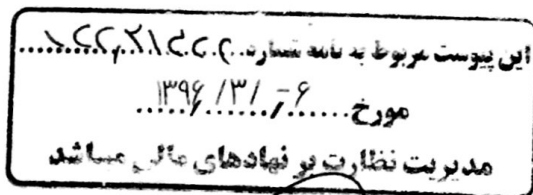 این پیوست مربوط به نامه شماره
مورخ ۱۳۹۶/۳/۰۶
مدیریت نظارت بر نهادهای مالی میباشد